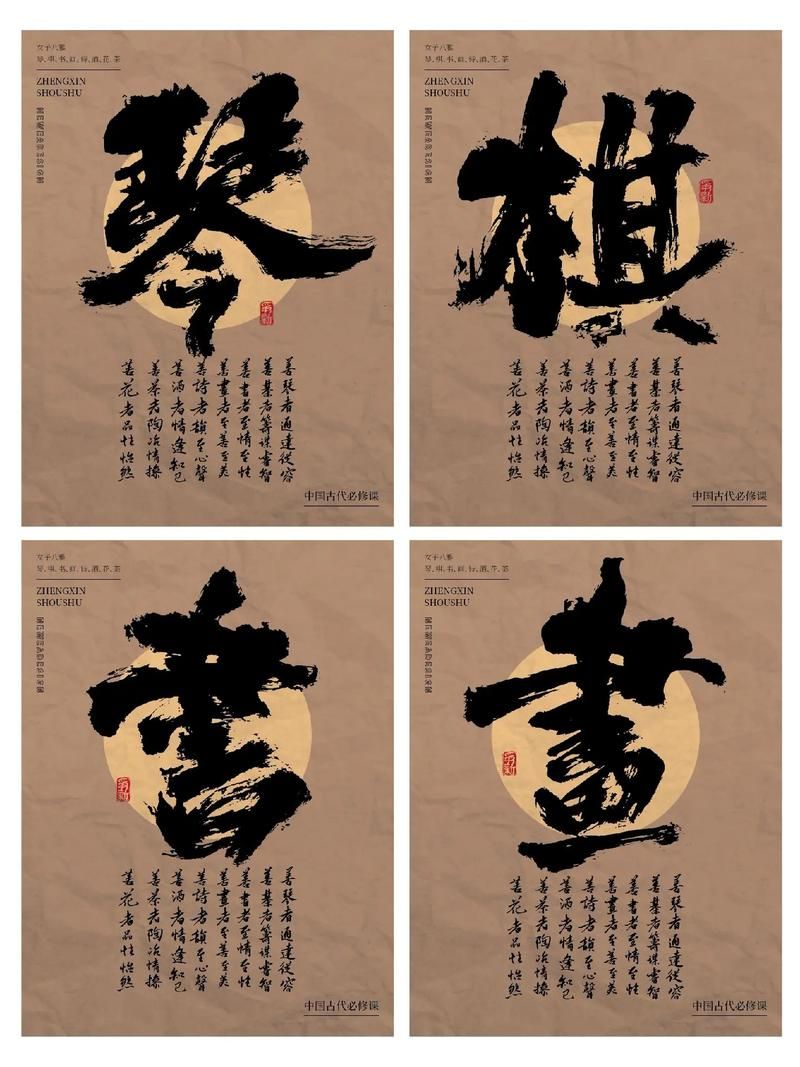 女子八雅
琴.棋.书.画.诗.酒.花.茶
ZHENGXIN
SHOUSHU
琴
善琴者通達從容
善棊者籌謀睿智
善書者至情至性
善畫者至善至美
善詩者韻至心聲
善酒者情逢知己
善茶者陶冶情操
善花者品性怡然
中国古代必修课
女子八雅
琴.棋.书.画.诗.酒.花.茶
ZHENGXIN
SHOUSHU
棋
善琴者通達從容
善棊者籌謀睿智
善書者至情至性
善畫者至善至美
善詩者韻至心聲
善酒者情逢知己
善茶者陶冶情操
善花者品性怡然
中国古代必修课
女子八雅
琴.棋.书.画.诗.酒.花.茶
ZHENGXIN
SHOUSHU
書
善琴者通達從容
善棊者籌謀睿智
善書者至情至性
善畫者至善至美
善詩者韻至心聲
善酒者情逢知己
善茶者陶冶情操
善花者品性怡然
中国古代必修课
女子八雅
琴.棋.书.画.诗.酒.花.茶
ZHENGXIN
SHOUSHU
畫
善琴者通達從容
善棊者籌謀睿智
善書者至情至性
善畫者至善至美
善詩者韻至心聲
善酒者情逢知己
善茶者陶冶情操
善花者品性怡然
中国古代必修课